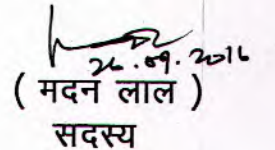 26.09.2016
( मदन लाल )
सदस्य